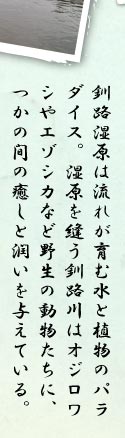 釧路湿原は流れが育む水と植物のパラ
ダイス。湿原を縫う釧路川はオジロワ
シやエゾシカなど野生の動物たちに、
つかの間の癒しと潤いを与えている。